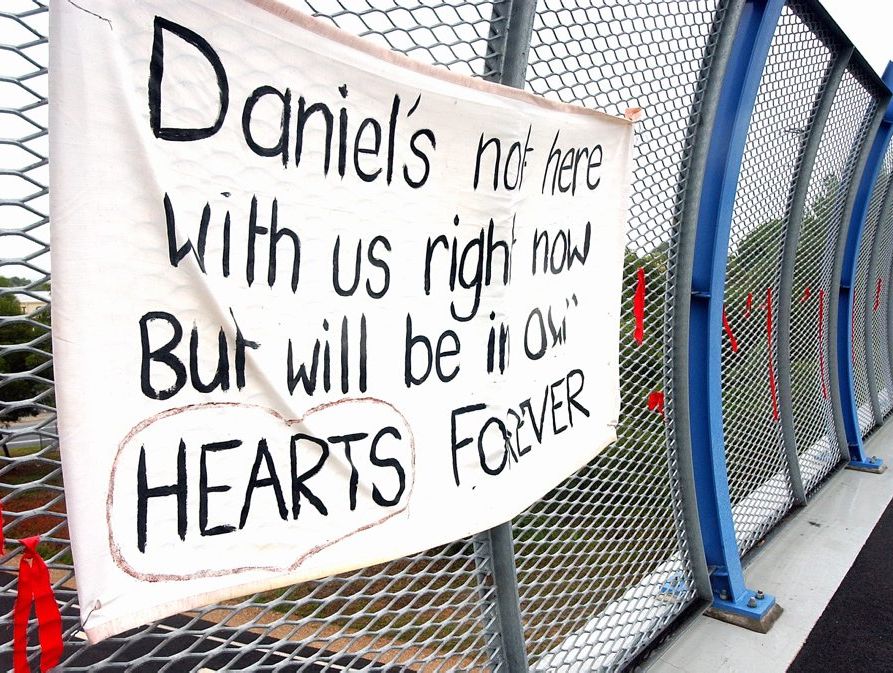 Daniel's not here
With us right now
But will be in our
HEARTS FOREVER